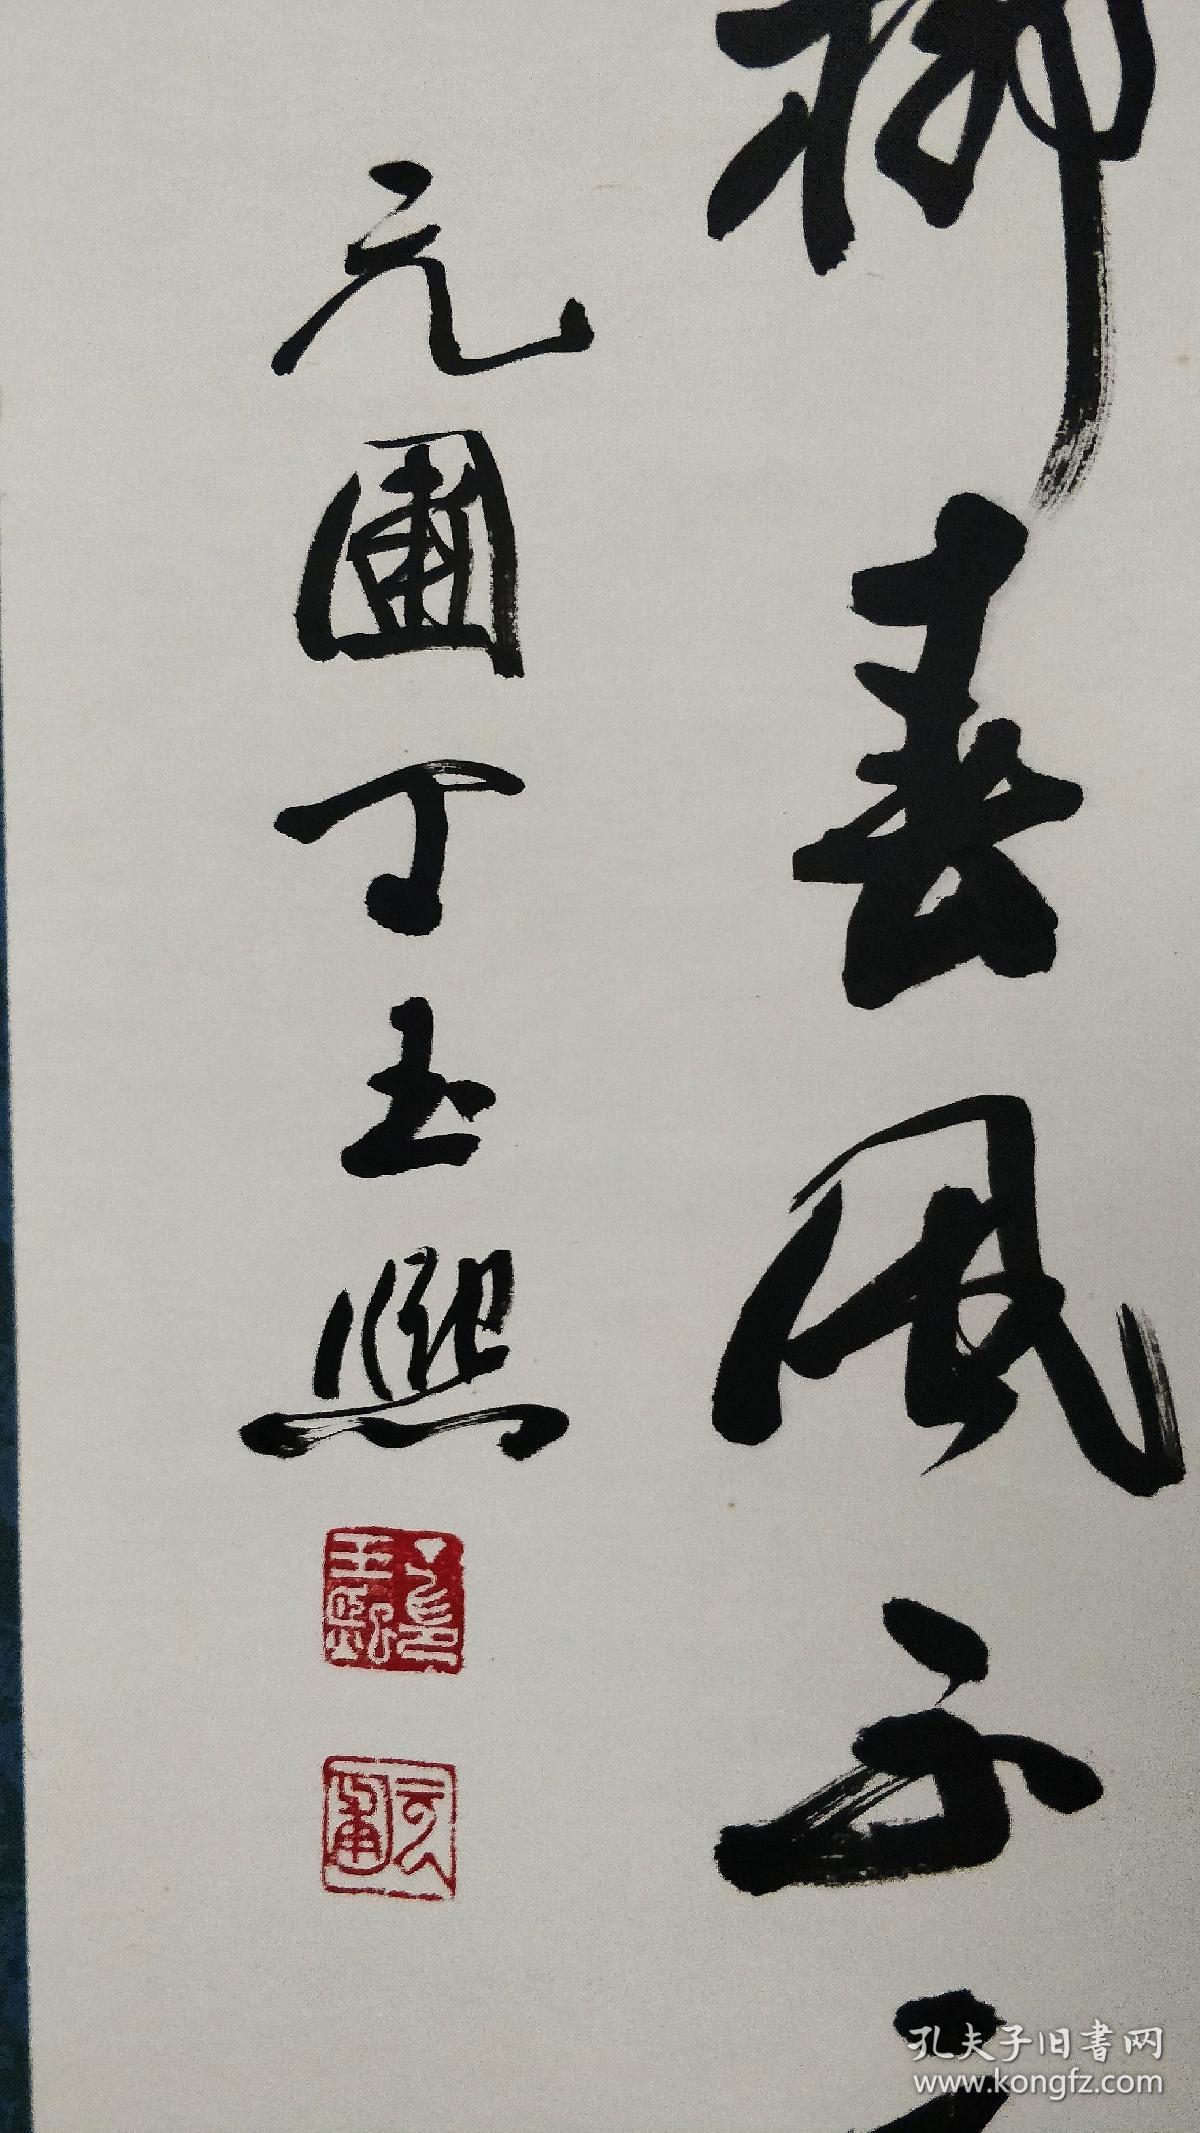 柳春風不
元圃丁玉熙
丁玉熙印
孔夫子旧書网
www.kongfz.com